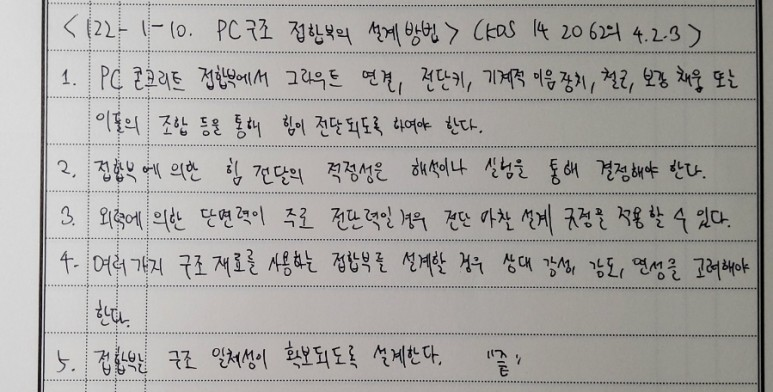 <122-1-10. PC구조 접합부의 설계방법> (KDS 14 20 62의 4.2.3)
1. PC 콘크리트 접합부에서 그라우트 연결, 전단키, 기계적 이음장치, 철근, 보강 채움 또는
이들의 조합 등을 통해 힘이 전달되도록 하여야 한다.
2. 접합부에 의한 힘 전달의 적정성은 해석이나 실험을 통해 결정해야 한다.
3. 외력에 의한 단면력이 주로 전단력일 경우 전단 마찰 설계 규정을 적용할 수 있다.
4. 여러가지 구조 재료를 사용하는 접합부를 설계할 경우 상대 강성, 강도, 연성을 고려해야
한다.
5. 접합부는 구조 일체성이 확보되도록 설계한다. "끝"